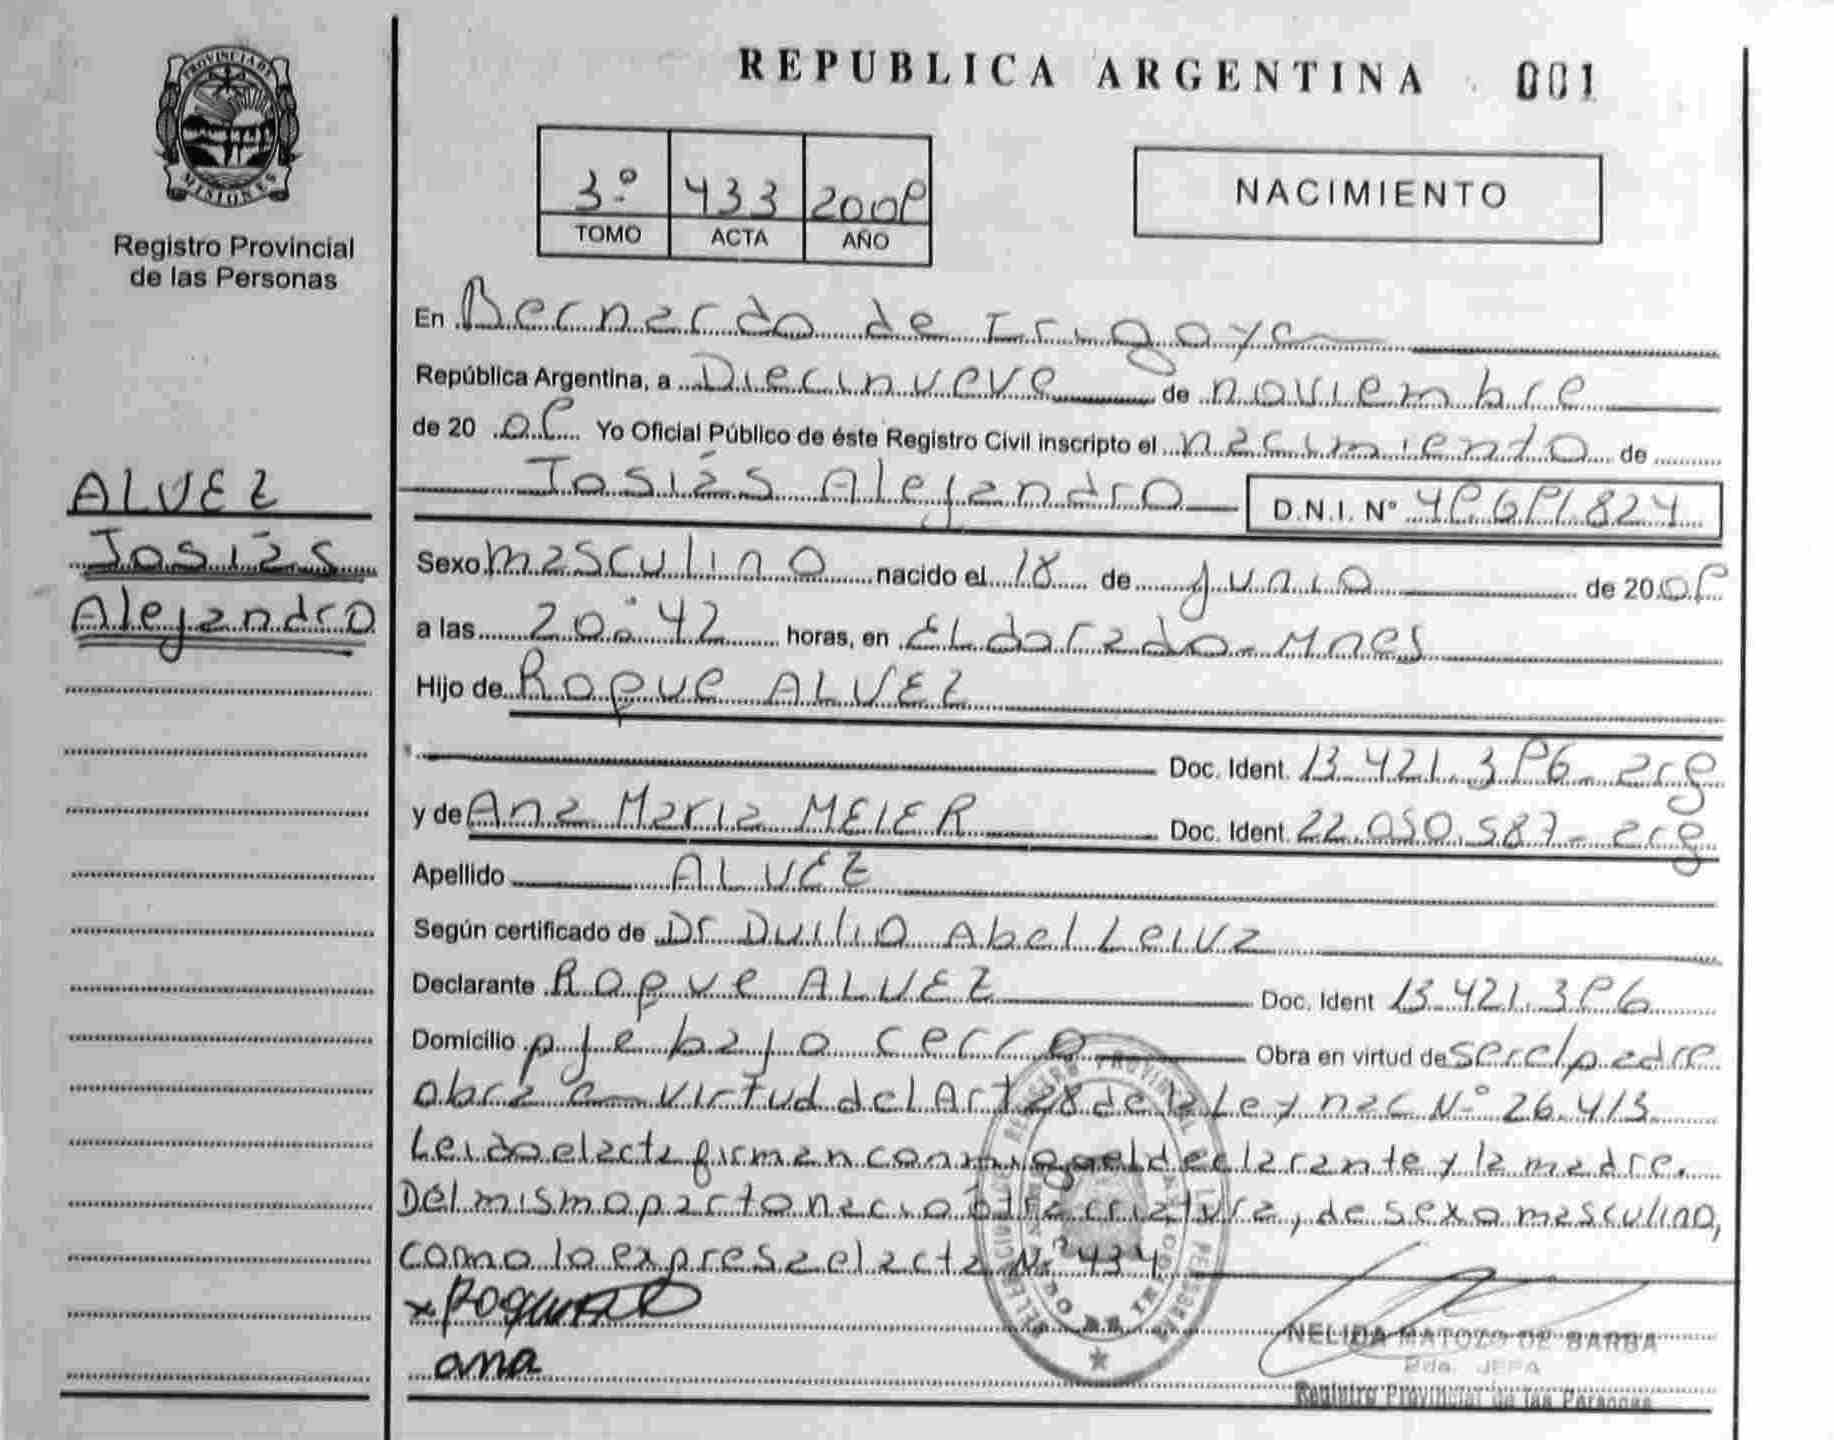 PROVINCIA DE
MISIONES
Registro Provincial
de las Personas
ALVEZ
Josiás
Alejandro
REPUBLICA ARGENTINA 001
3º 433 2009
TOMO ACTA AÑO
NACIMIENTO
En Bernardo de Irigoyen
República Argentina, a Diecinueve de noviembre
de 20 09 Yo Oficial Público de éste Registro Civil inscripto el nacimiento de
Josiás Alejandro D.N.I. Nº 49.691.824
Sexo masculino nacido el 18 de junio de 20 09
a las 20:42 horas, en ELdorado-Mnes
Hijo de Roque ALVEZ
Doc. Ident. 13.421.396-arg
y de Ana Maria MEIER Doc. Ident. 22.050.587-arg
Apellido ALVEZ
Según certificado de Dr Duilio Abel Leiva
Declarante Roque ALVEZ Doc. Ident 13.421.396
Domicilio pje bajo cerro Obra en virtud de ser el padre
obra en virtud del Art 28 de la Ley nac Nº 26.413
Leido el acta firman conmigo el declarante y la madre.
Del mismo parto nacio otra criatura, de sexo masculino,
como lo expresa el acta Nº 434
x Roque
ana
NELIDA MATOZO DE BARBA
2da. JEFA
Registro Provincial de las Personas